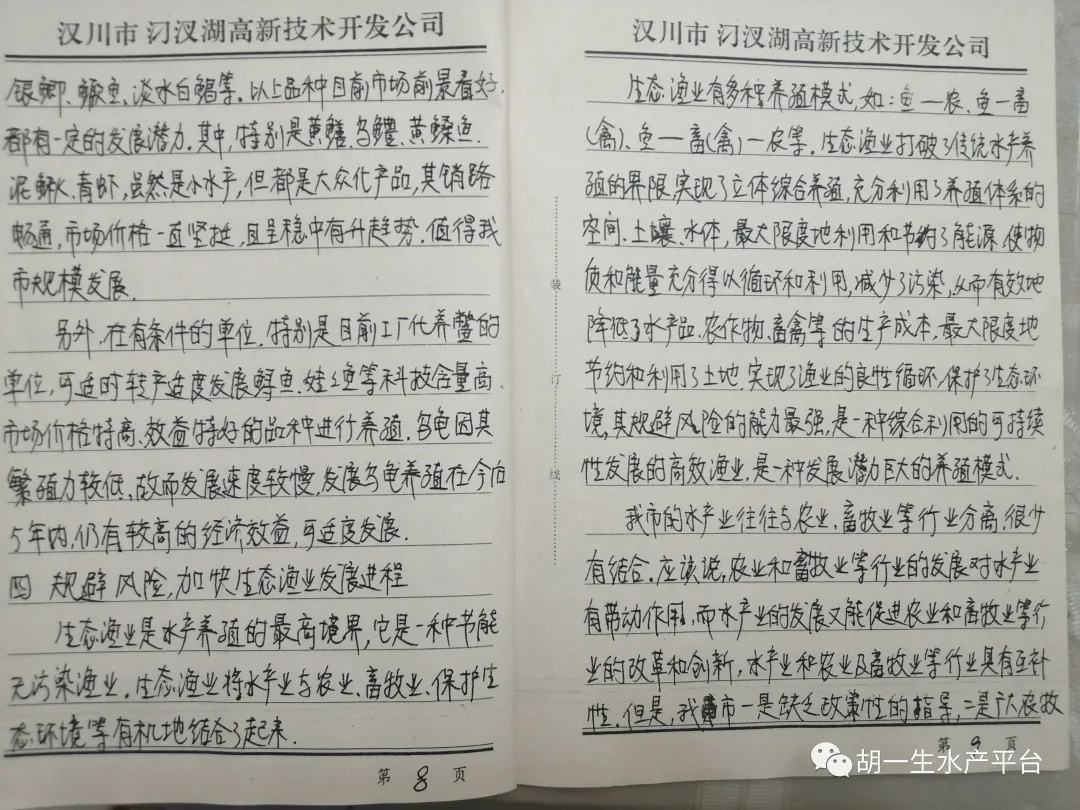 汉川市 汈汊湖高新技术开发公司
银鲫、鳜鱼、淡水白鲳等。以上品种目前市场前景看好,
都有一定的发展潜力。其中,特别是黄鳝、乌鳢、黄鲦鱼.
泥鳅、青虾,虽然是小水产,但都是大众化产品,其销路
畅通,市场价格一直坚挺,且呈稳中有升趋势.值得我
市规模发展.
另外,在有条件的单位.特别是目前工厂化养鳖的
单位,可适时转产适度发展鲟鱼.娃娃鱼等科技含量高、
市场价格特高、效益特好的品种进行养殖.乌龟因其
繁殖力较低,故而发展速度较慢,发展乌龟养殖在今后
5年内,仍有较高的经济效益,可适度发展.
四 规避风险,加快生态渔业发展进程
生态渔业是水产养殖的最高境界,它是一种节能
无污染渔业。生态渔业将水产业与农业、畜牧业、保护生
态环境等有机地结合了起来.
第 8 页
汉川市 汈汊湖高新技术开发公司
生态渔业有多种养殖模式,如:鱼—农、鱼—畜
(禽)、鱼—畜(禽)—农等.生态渔业打破了传统水产养
殖的界限,实现了立体综合养殖,充分利用了养殖体系的
空间.土壤、水体,最大限度地利用和节约了能源.使物
质和能量充分得以循环和利用,减少了污染,从而有效地
降低了水产品.农作物.畜禽等的生产成本,最大限度地
节约和利用了土地.实现了渔业的良性循环,保护了生态环
境,其规避风险的能力最强,是一种综合利用的可持续
性发展的高效渔业,是一种发展潜力巨大的养殖模式.
我市的水产业往往与农业,畜牧业等行业分离,很少
有结合.应该说,农业和畜牧业等行业的发展对水产业
有带动作用.而水产业的发展又能促进农业和畜牧业等行
业的改革和创新,水产业和农业及畜牧业等行业具有互补
性.但是,我市一是缺乏政策性的指导,二是广大农牧
第 9 页
装
订
线
胡一生水产平台